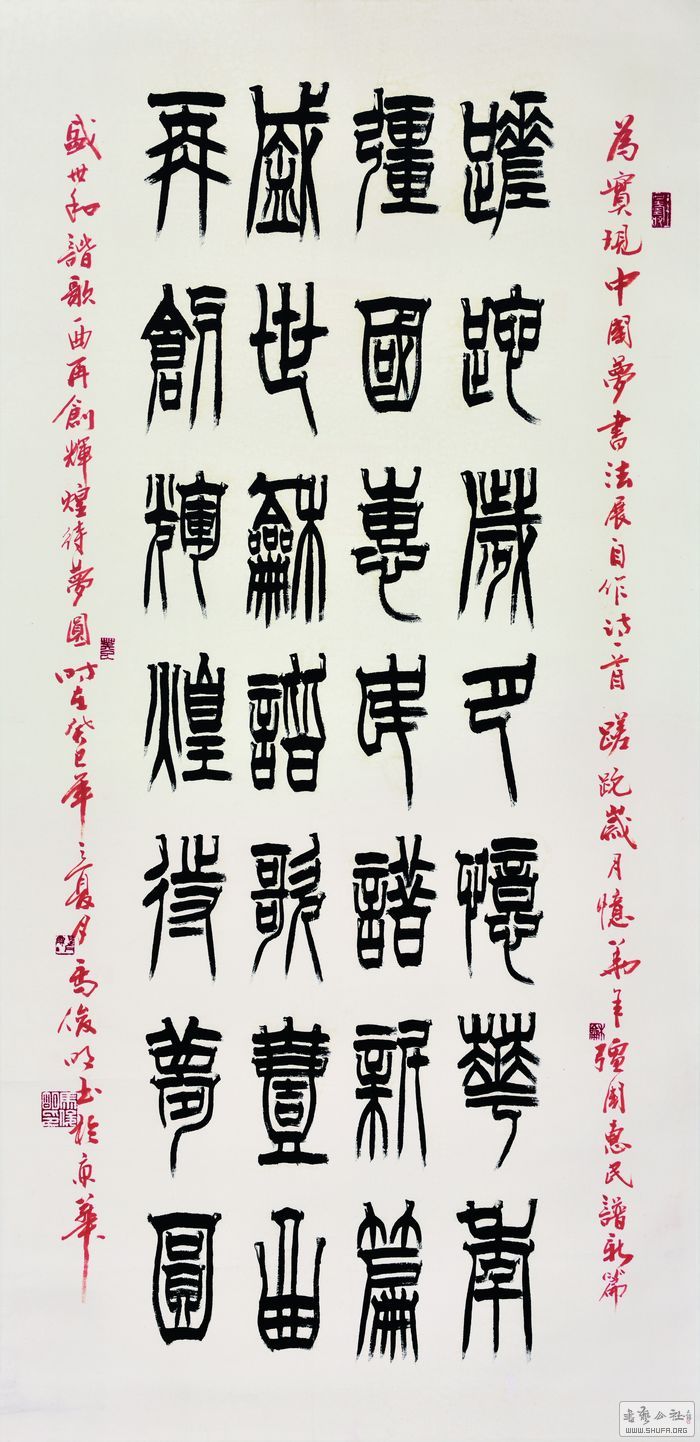 為實現中國夢書法展自作詩一首 蹉跎歲月憶華年 彊國惠民譜新篇
蹉跎歲月憶華年
彊國惠民譜新篇
盛世龢諧歌壹曲
再創輝煌待夢圓
盛世和諧歌一曲再創輝煌待夢圓 時在癸巳年之夏月馬俊明書於京華
書藝公社
WWW.SHUFA.ORG